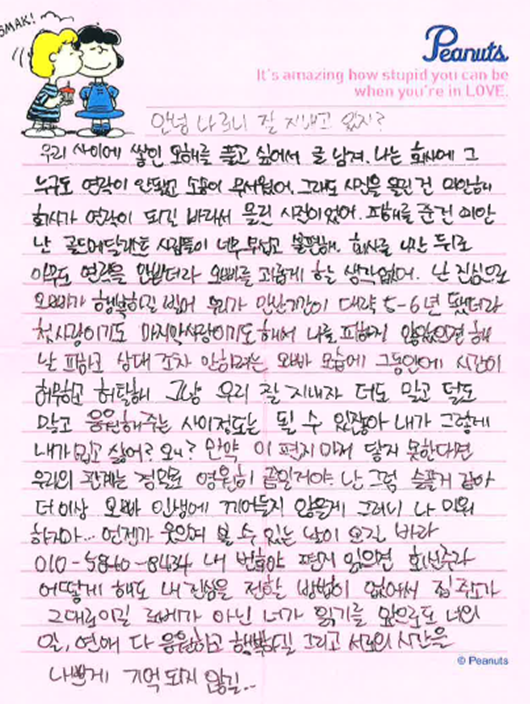 SMAK!
Peanuts
It's amazing how stupid you can be
when you're in LOVE.
안녕 나르니 잘 지내고 있지?
우리 사이에 쌓인 오해를 풀고 싶어서 글 남겨. 나는 회사에 그
누구도 연락이 안됐고 소송이 무서웠어. 그래도 사진을 올린건 미안해
회사가 연락이 되길 바라서 올린 사진이었어. 피해를 준건 미안
난 골드메달리스트 사람들이 너무 무섭고 불편해. 회사를 나간 뒤로
아무도 연락을 안받더라 오빠를 괴롭게 할 생각없어. 난 진심으로
오빠가 행복하길 빌어 우리가 만난기간이 대략 5-6년 됐더라
첫사랑이기도 마지막사랑이기도 해서 나를 피하지 않았으면 해
날 피하고 상대 조차 안하려는 오빠 모습에 그동안에 시간이
허무하고 허탈해 그냥 우리 잘 지내자 더도 말고 덜도
말고 응원해주는 사이정도는 될 수 있잖아 내가 그렇게
내가 밉고 싫어? 왜? 만약 이 편지마저 닿지 못한다면
우리의 관계는 정말로 영원히 끝일거야. 난 그럼 슬플거 같아
더이상 오빠 인생에 끼어들지 않을게 그러니 나 미워
하지마... 언젠가 웃으며 볼 수 있는 날이 오길 바라
010-5840-8434 내 번호야 편지 읽으면 회신주라
어떻게 해도 내 진심을 전할 방법이 없어서 집 주소가
그대로이길 로베가 아닌 너가 읽기를 앞으로도 너의
일, 연애 다 응원하고 행복하길 그리고 서로의 시간을
나쁘게 기억되지 않길..
© Peanuts